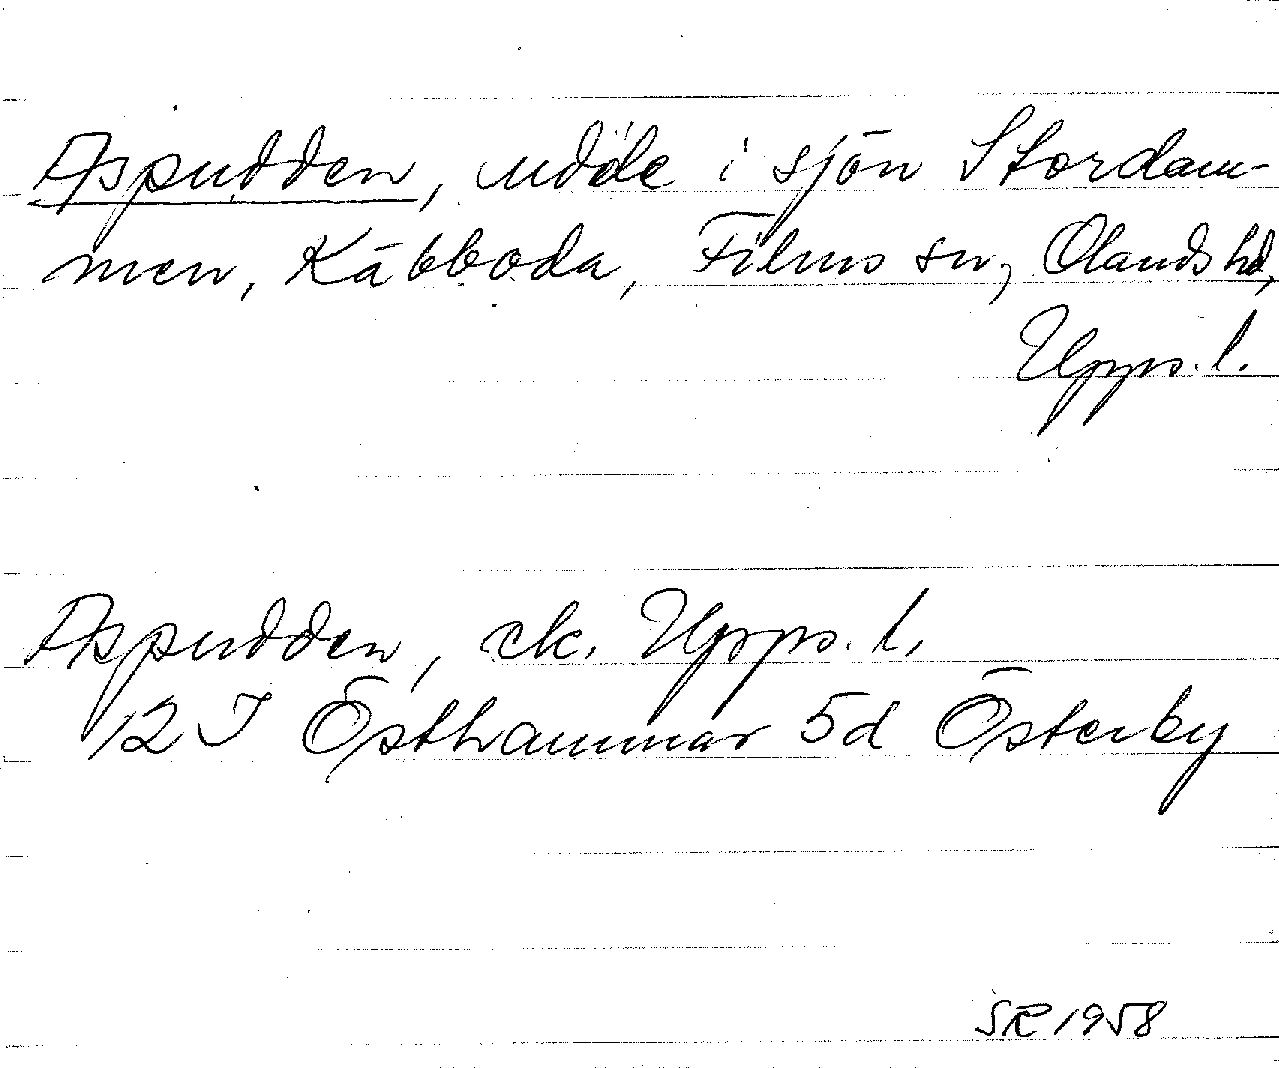 Aspudden, udde i sjön Stordam-
men, Käbboda, Films sn, Olands hd,
Upps. l.
Aspudden, ek. Upps. l.
12 I Östhammar 5d Österby
SR 1958